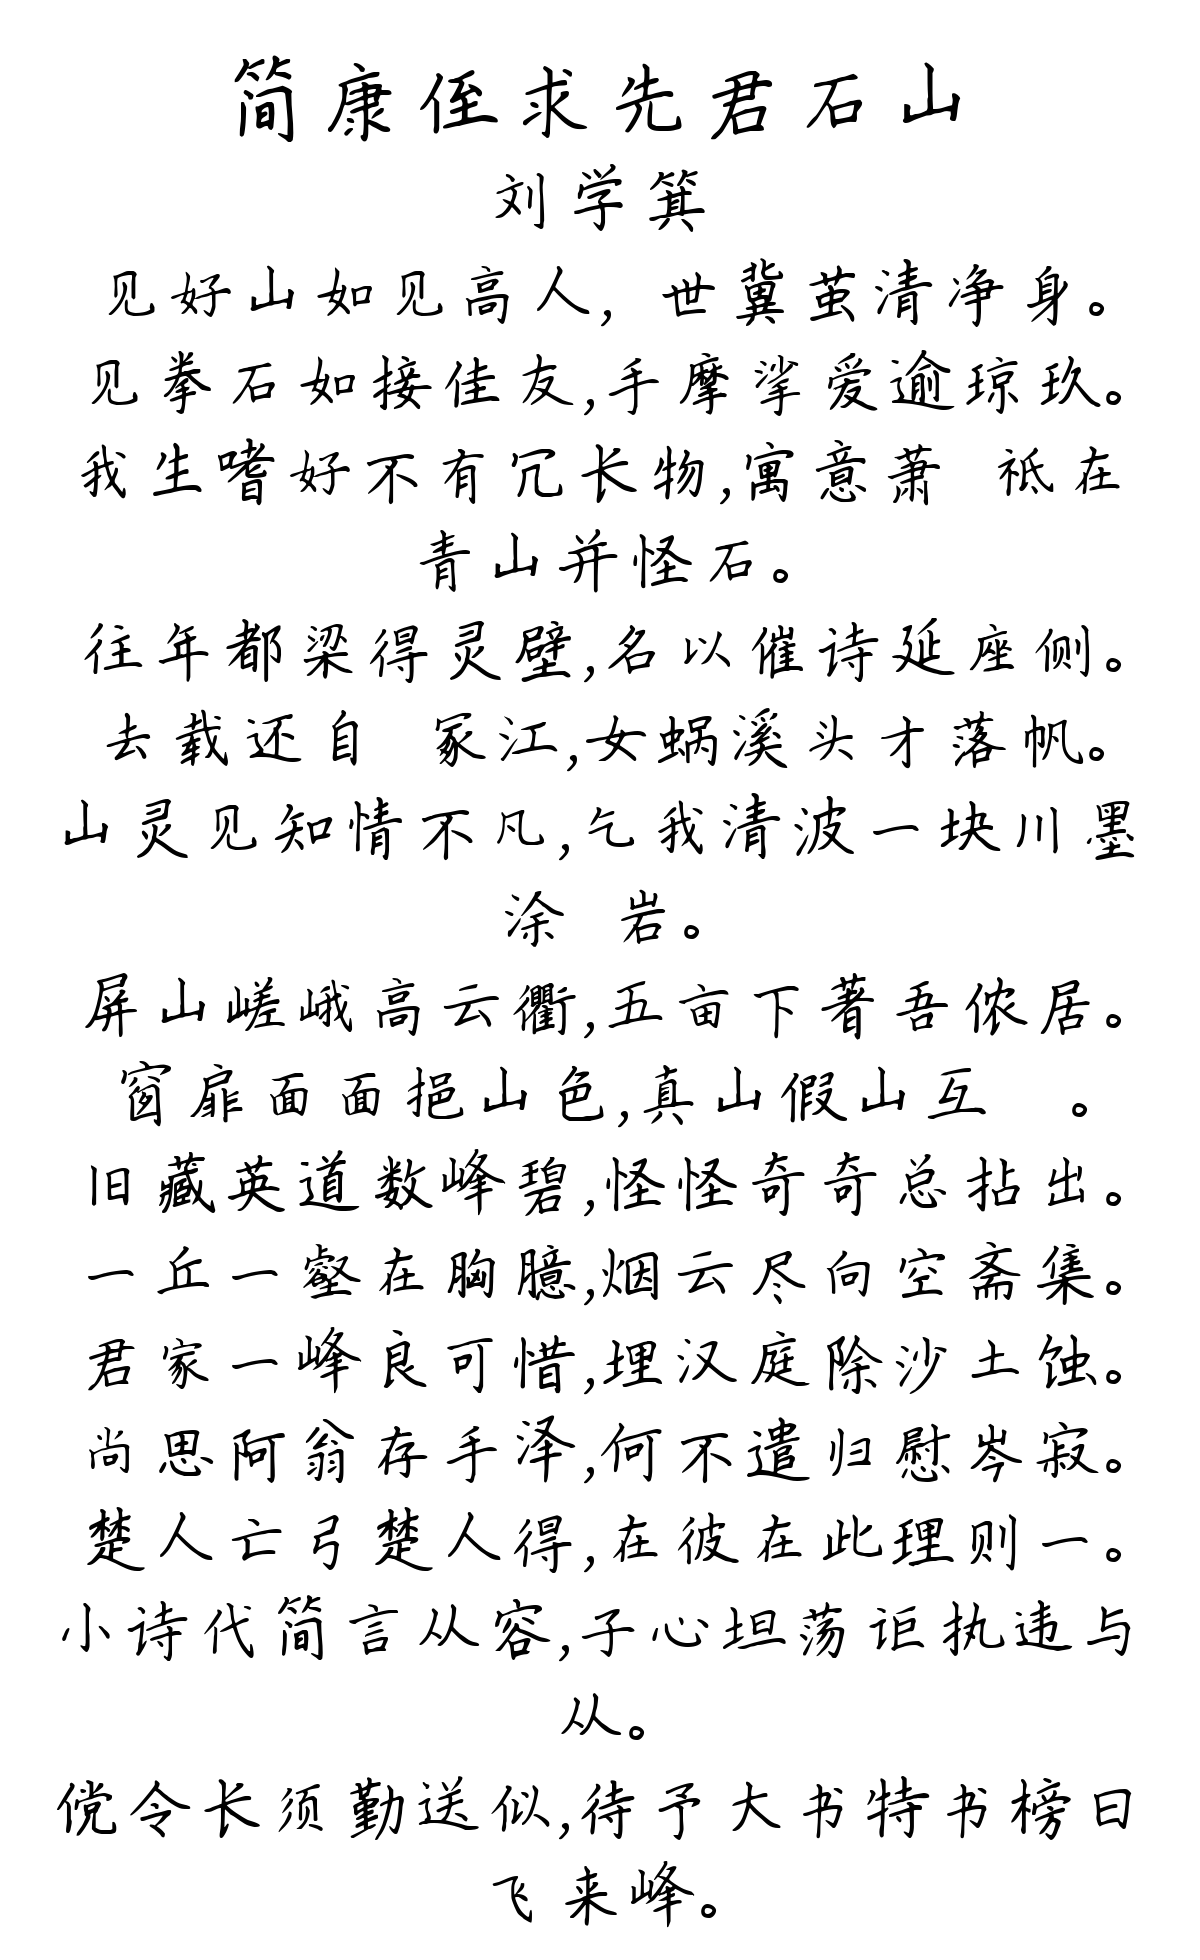 简康侄求先君石山
刘学箕
见好山如见高人，世冀茧清净身。
见拳石如接佳友，手摩挲爱逾琼玖。
我生嗜好不有冗长物，寓意萧 祗在
青山并怪石。
往年都梁得灵壁，名以催诗延座侧。
去载还自 冢江，女蜗溪头才落帆。
山灵见知情不凡，乞我清波一块川墨
涂 岩。
屏山嵯峨高云衢，五亩下著吾侬居。
窗扉面面挹山色，真山假山互 。
旧藏英道数峰碧，怪怪奇奇总拈出。
一丘一壑在胸臆，烟云尽向空斋集。
君家一峰良可惜，埋汉庭除沙土蚀。
尚思阿翁存手泽，何不遣归慰岑寂。
楚人亡弓楚人得，在彼在此理则一。
小诗代简言从容，子心坦荡讵执违与
从。
傥令长须勤送似，待予大书特书榜曰
飞来峰。